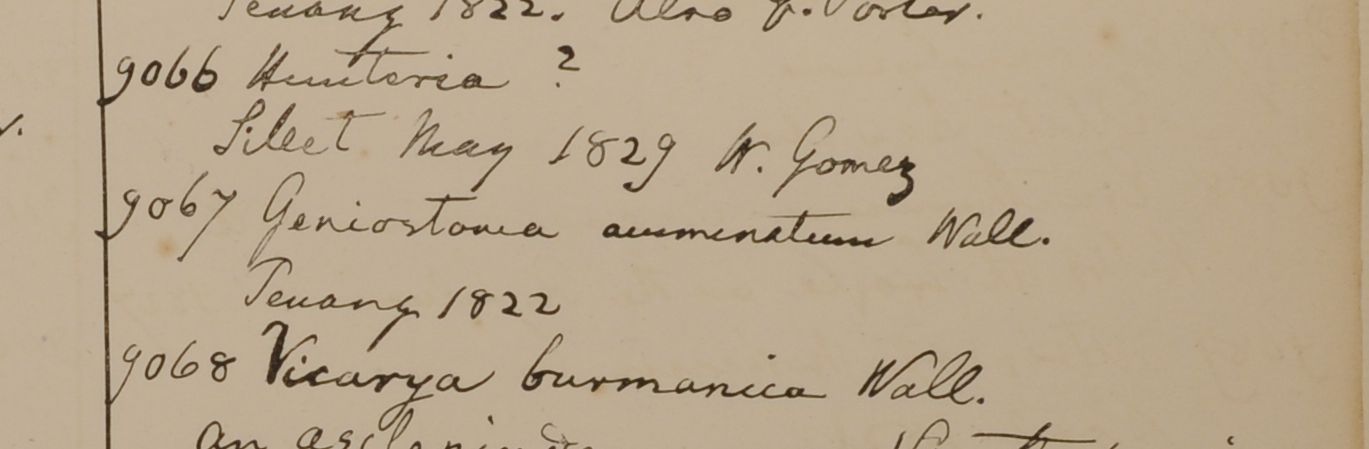 Penang 1822. Also G. Porter.
9066 Hunteria ?
Silet May 1829 W. Gomez
9067 Geniostoma acuminatum Wall.
Penang 1822
9068 Vicarya burmanica Wall.
an